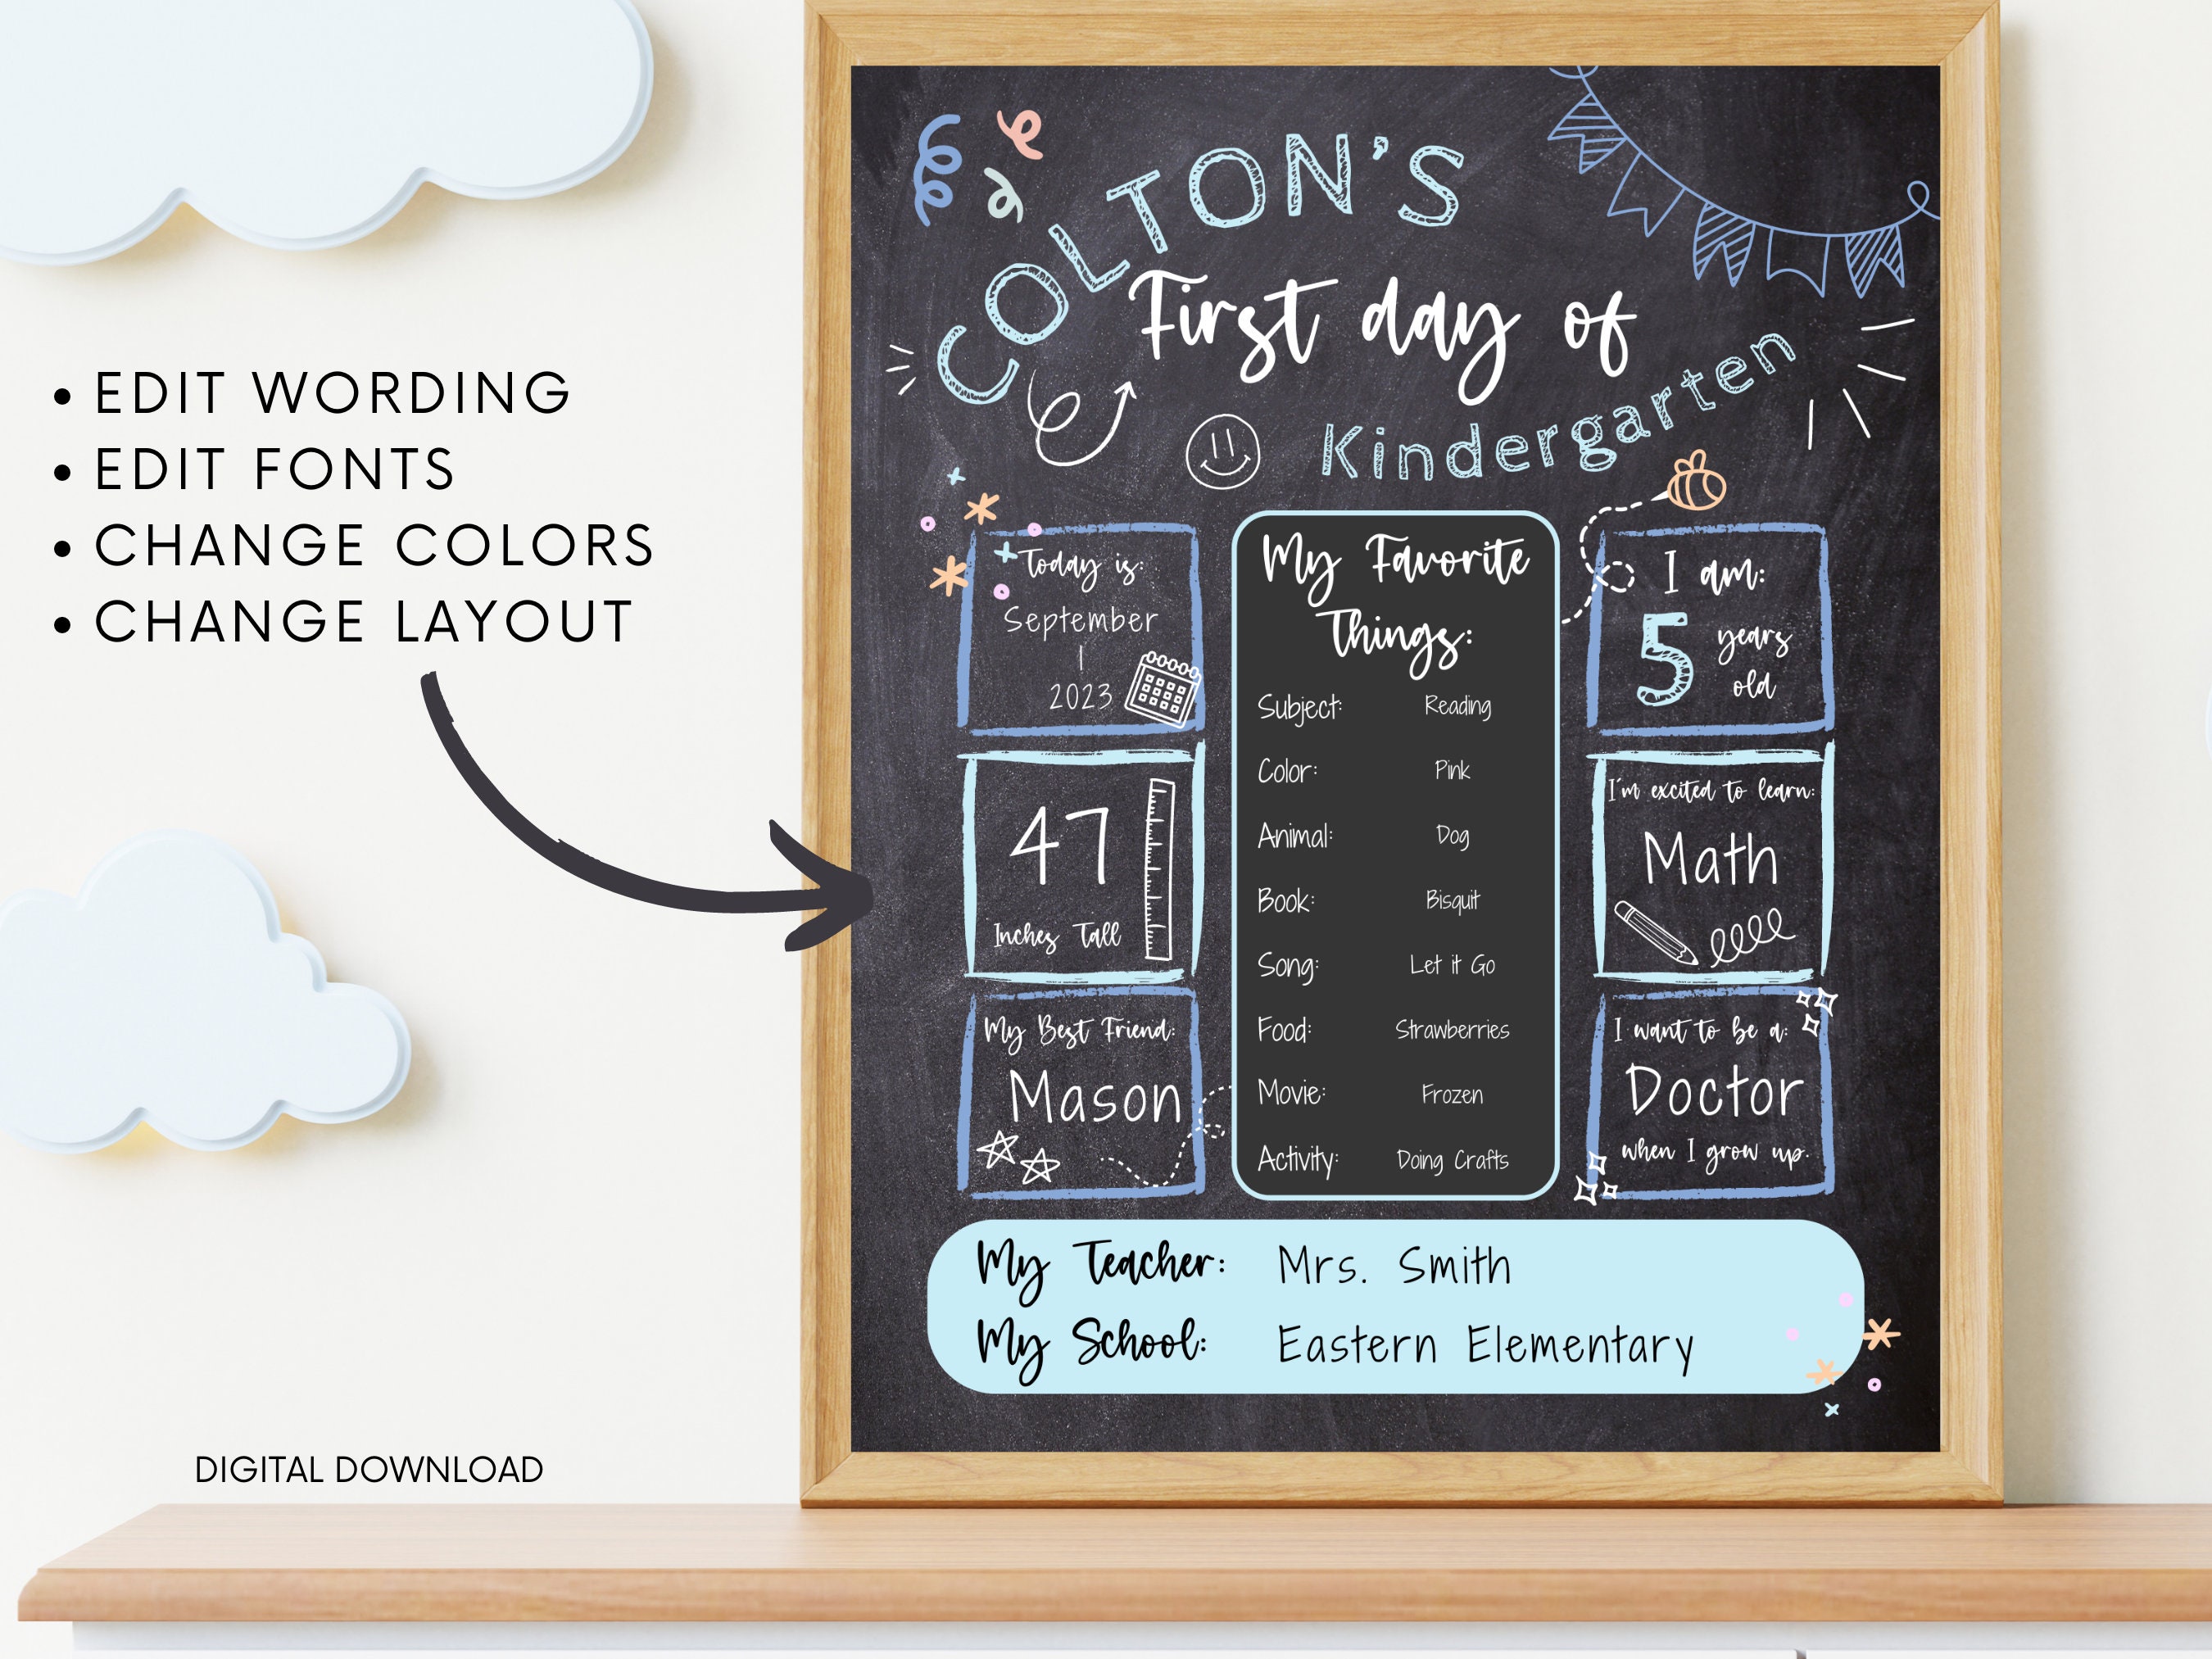 • EDIT WORDING
• EDIT FONTS
• CHANGE COLORS
• CHANGE LAYOUT
DIGITAL DOWNLOAD
COLTON'S
First day of
Kindergarten
Today is:
September
1
2023
47
Inches Tall
My Best Friend:
Mason
My Favorite
Things:
Subject: Reading
Color: Pink
Animal: Dog
Book: Bisquit
Song: Let it Go
Food: Strawberries
Movie: Frozen
Activity: Doing Crafts
I am:
5 years
old
I'm excited to learn:
Math
I want to be a:
Doctor
when I grow up.
My Teacher: Mrs. Smith
My School: Eastern Elementary